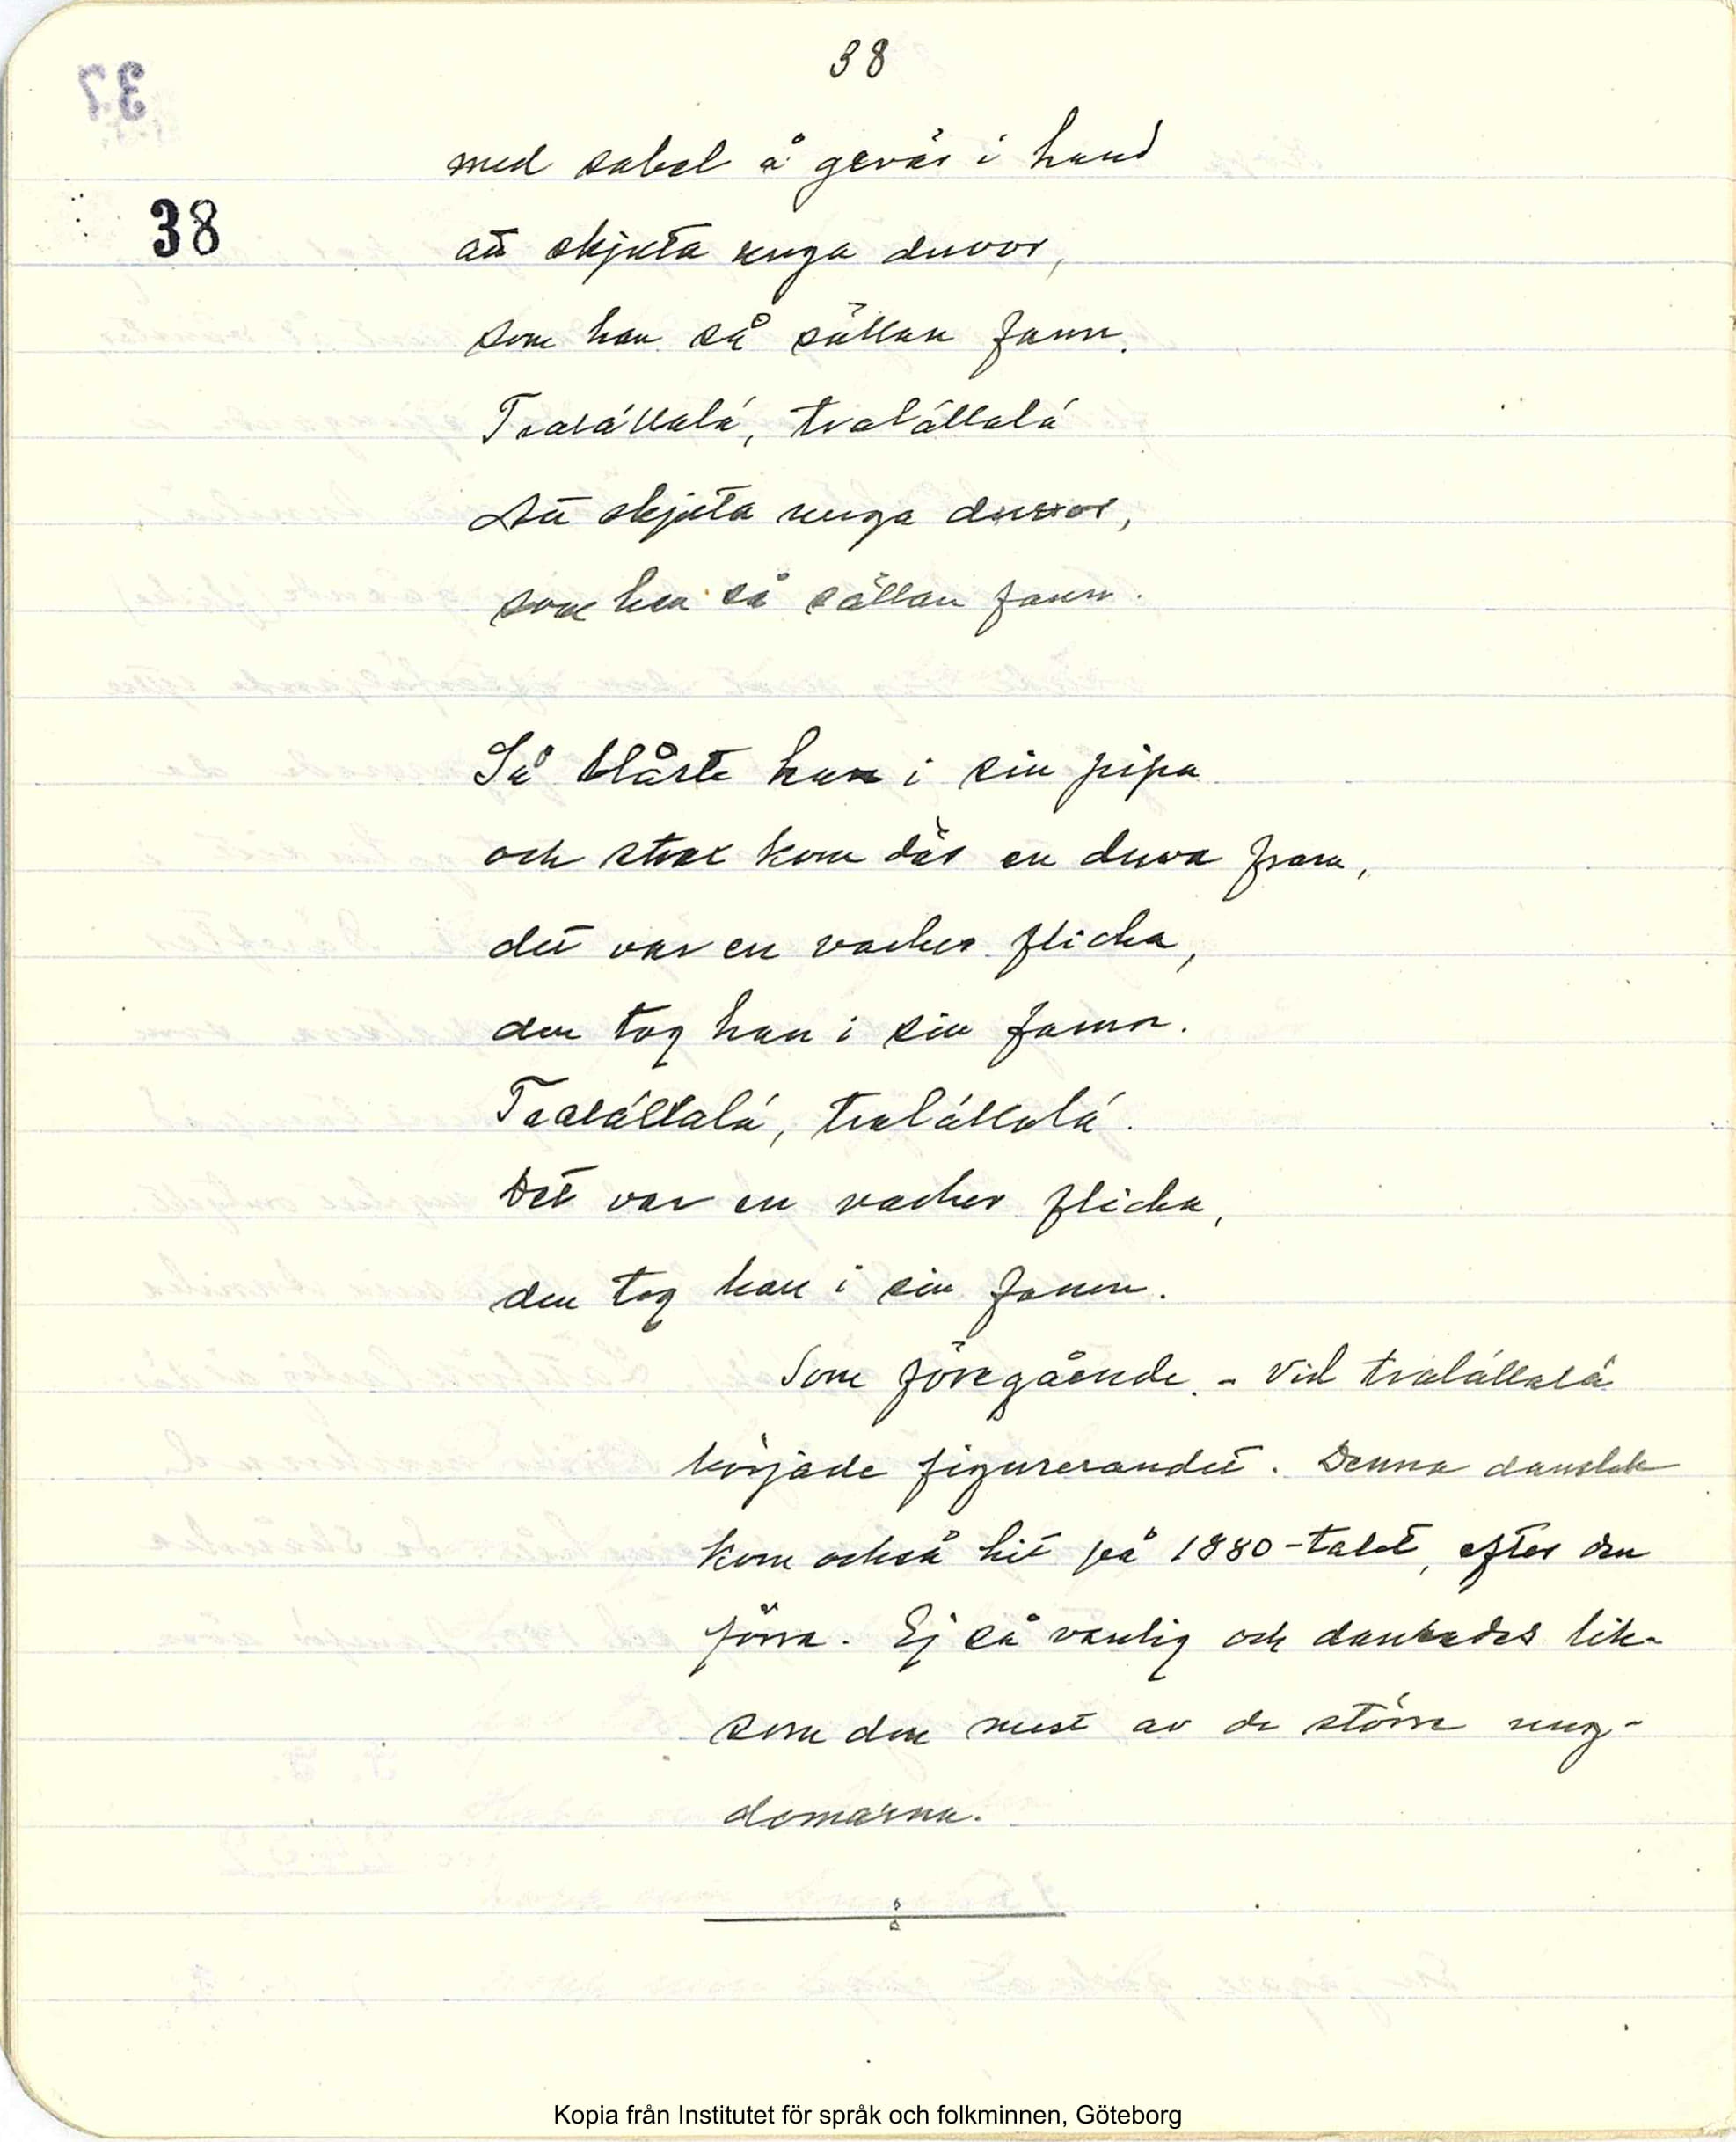 38
37
38
med sabel å gevär i hand
att skjuta unga duvor,
som han så sällan fann.
Tralállalá, tralállalá
Att skjuta unga duvor,
som han så sällan fann.
Så blåste han i sin pipa
och strax kom där en duva fram,
det var en vacker flicka,
den tog han i sin famn.
Tralállalá, tralállalá.
Det var en vacker flicka,
den tog han i sin famn.
Som föregående. - Vid tralállalá
började figurerandet. Denna danslek
kom också hit på 1880-talet, efter den
förra. Ej så vanlig och dansades lik-
som den mest av de större ung-
domarna.
Kopia från Institutet för språk och folkminnen, Göteborg